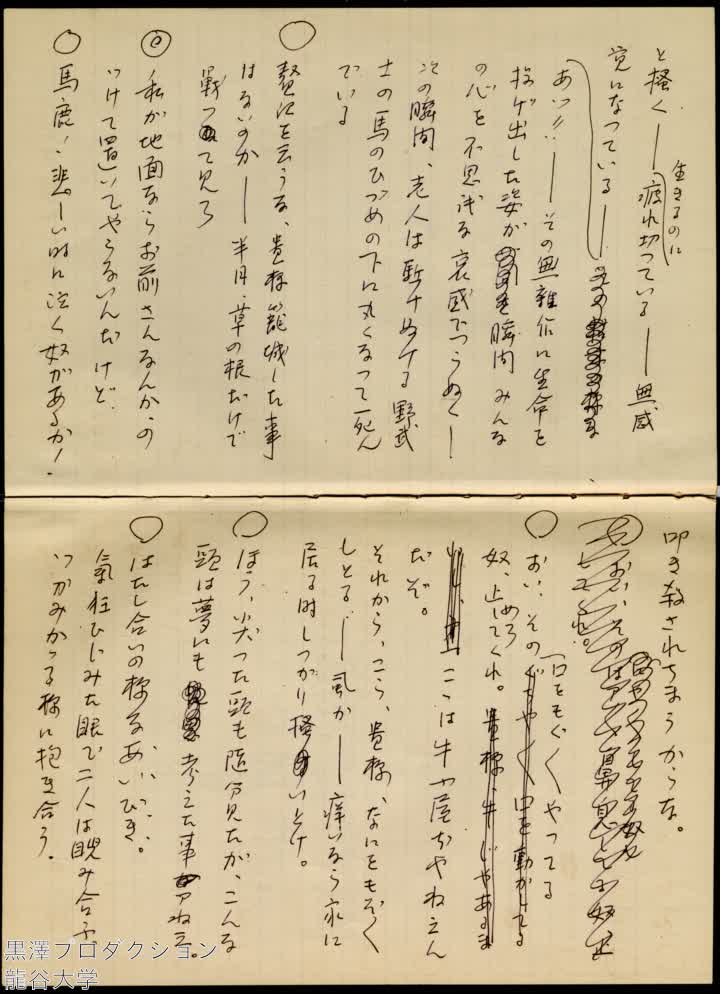 と掻く――疲れ切っている――無感
生きるのに
覚になっている――
あッ!!――その無雑作に生命を
投げ出した姿が瞬間みんな
の心を不思議な哀感でつらぬく――
次の瞬間、老人は駈けぬける野武
士の馬のひづめの下に丸くなって死ん
でいる
○
贅沢を云うな、貴様籠城した事
はないのか――半月、草の根だけで
戦って見ろ
◎
私が地面ならお前さんなんか、の
っけて置いてやらないんだけど、
○
馬鹿!悲しい時に泣く奴があるか!
叩き殺されちまうからな。
○
おい、その口をもぐ〱やってる
奴、止めろ
してくれ。
ここは牛小屋ぢやねえん
だぞ。
それから、こら、貴様、なにをもぞ〱
しとる。――虱か――痒いなら家に
居る時しつかり掻いとけ。
○
ほう、尖った頭も随分見たが、こんな
頭は夢にも考えた事アねえ。
○
はたし合いの様なあいびき。
氣狂ひじみた眼で二人は睨み合ふ、
つかみかゝる様に抱き合う。
黒澤プロダクション
龍谷大学